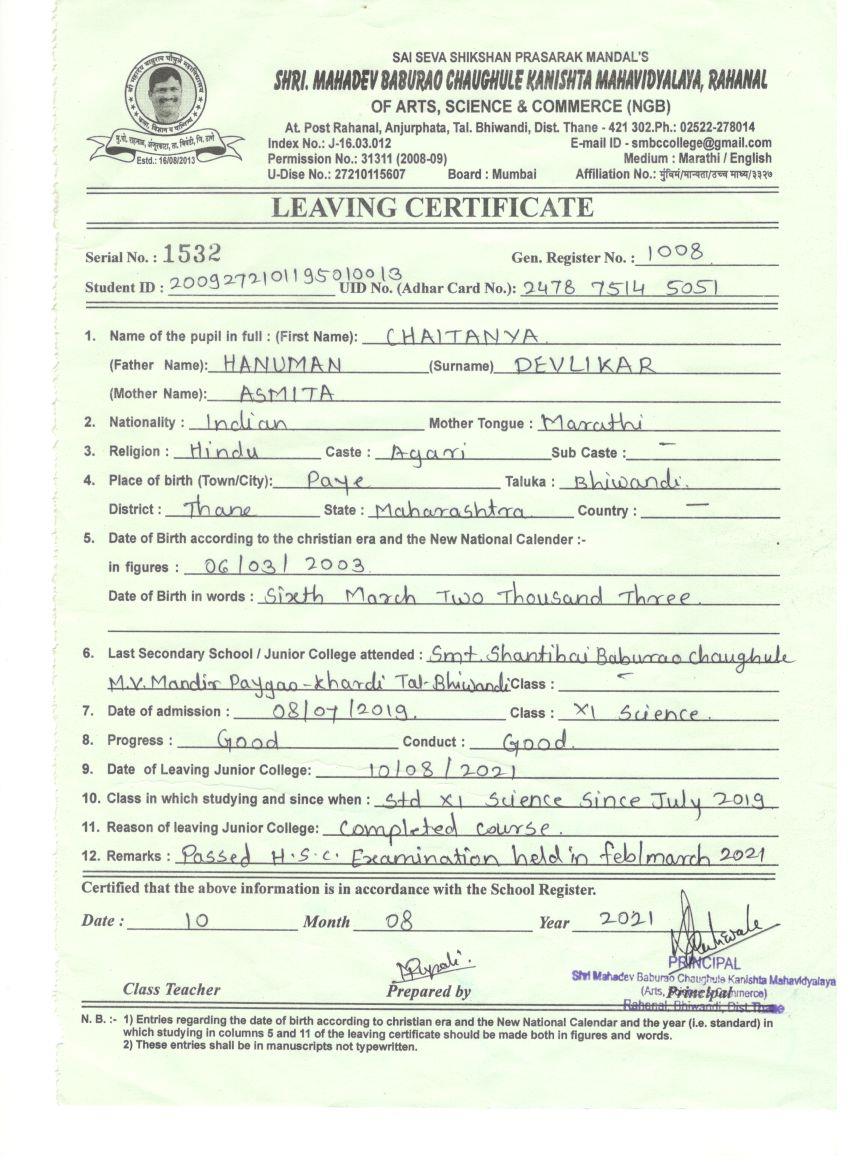 SAI SEVA SHIKSHAN PRASARAK MANDAL'S
SHRI. MAHADEV BABURAO CHAUGHULE KANISHTA MAHAVIDYALAYA, RAHANAL
OF ARTS, SCIENCE & COMMERCE (NGB)
At. Post Rahanal, Anjurphata, Tal. Bhiwandi, Dist. Thane - 421 302.Ph.: 02522-278014
Index No.: J-16.03.012 E-mail ID - smbccollege@gmail.com
Permission No.: 31311 (2008-09) Medium : Marathi / English
U-Dise No.: 27210115607 Board : Mumbai Affiliation No.: मुंचिमं/मान्यता/उच्च माध्य/३३२७
श्री महादेव बाबुराव चौघुले महाविद्यालय
कला, विज्ञान व वाणिज्य
मु.पो. राहनाळ, अंजुरफाटा, ता. भिवंडी, जि. ठाणे
Estd.: 16/08/2013
LEAVING CERTIFICATE
Serial No. : 1532 Gen. Register No. : 1008
Student ID : 2009272101195010013 UID No. (Adhar Card No.): 2478 7514 5051
1. Name of the pupil in full : (First Name): CHAITANYA
(Father Name): HANUMAN (Surname) DEVLIKAR
(Mother Name): ASMITA
2. Nationality : Indian Mother Tongue : Marathi
3. Religion : Hindu Caste : Agari Sub Caste : -
4. Place of birth (Town/City): Paye Taluka : Bhiwandi.
District : Thane State : Maharashtra Country : -
5. Date of Birth according to the christian era and the New National Calender :-
in figures : 06/03/2003
Date of Birth in words : Sixth March Two Thousand Three.
6. Last Secondary School / Junior College attended : Smt. Shantibai Baburao chaughule
M.V. Mandir Paygao-khardi Tal-Bhiwandi Class : -
7. Date of admission : 08/07/2019. Class : XI Science.
8. Progress : Good Conduct : Good.
9. Date of Leaving Junior College: 10/08/2021
10. Class in which studying and since when : Std XI Science Since July 2019
11. Reason of leaving Junior College: Completed course.
12. Remarks : Passed H.S.C. Examination held in feb/march 2021
Certified that the above information is in accordance with the School Register.
Date : 10 Month 08 Year 2021
PRINCIPAL
Shri Mahadev Baburao Chaughule Kanishta Mahavidyalaya
(Arts, Science & Commerce)
Rahanal, Bhiwandi, Dist Thane
Class Teacher Prepared by Principal
N. B. :- 1) Entries regarding the date of birth according to christian era and the New National Calendar and the year (i.e. standard) in
which studying in columns 5 and 11 of the leaving certificate should be made both in figures and words.
2) These entries shall be in manuscripts not typewritten.